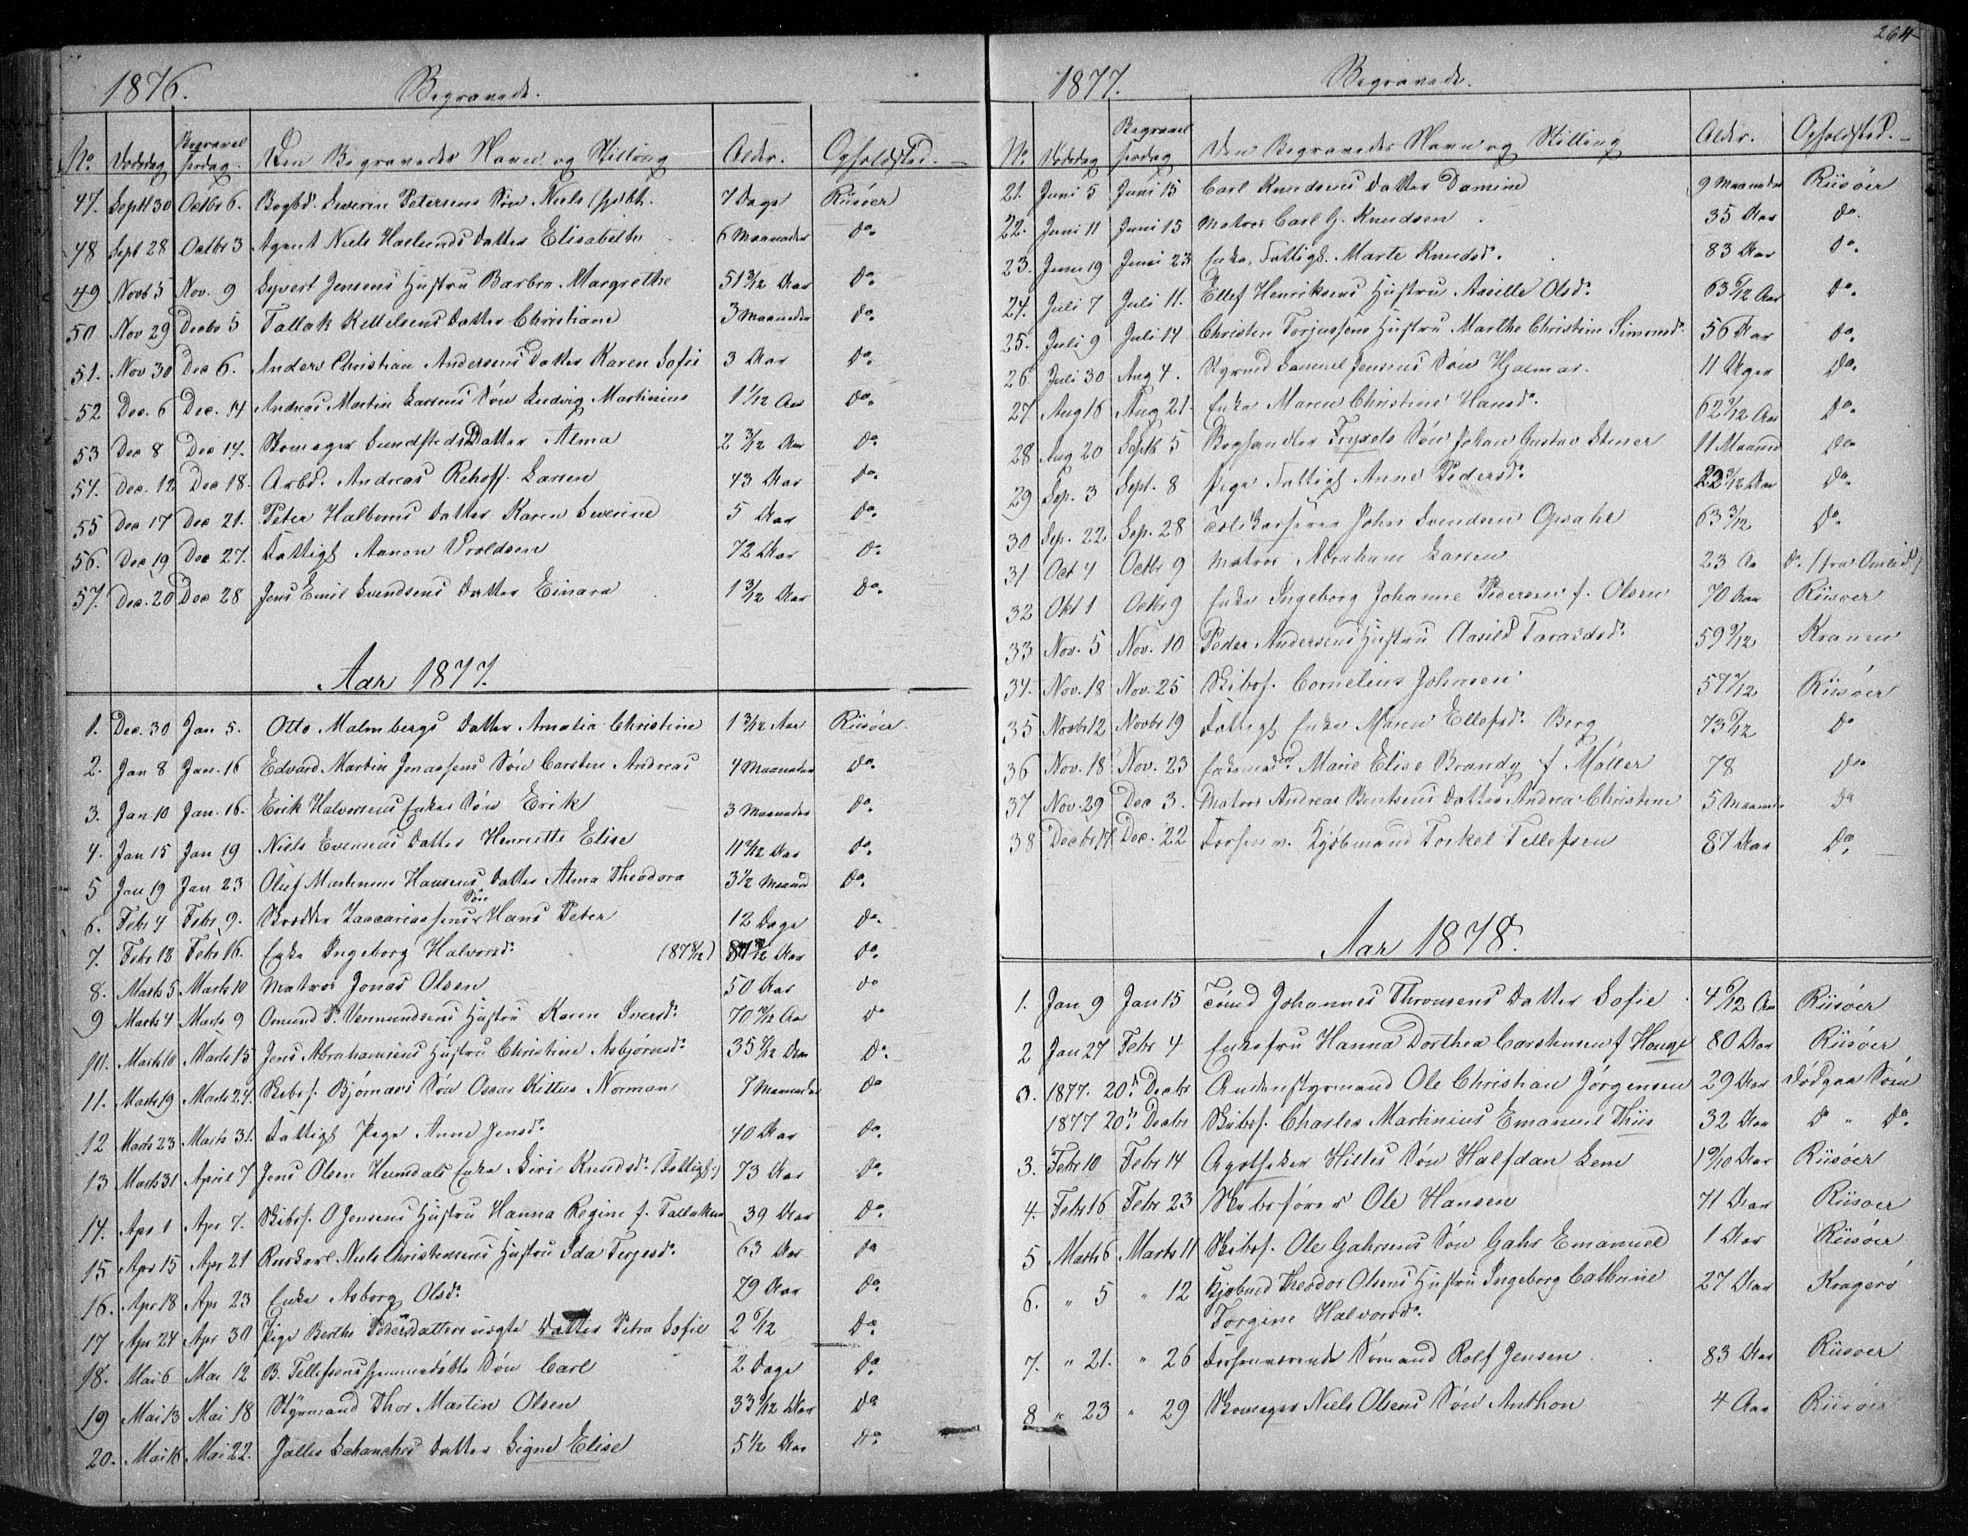 1876. Begravede.
No Dødsdag Begravelsesdag. Den Begravedes Navn og Stilling Alder. Opholdsted.
47. Septb 30 Octbr 6. Severin Petersens Søn Niels 7 Dage Riisøer
48 Sept 28 Octbr 3 Agent Niels Haslunds Datter Elisabeth 6 Maaneder Do.
49 Novb 5 Nov. 9 Syvert Jensens Hustru Barbra Margrethe 51 3/12 Aar Do.
50 Nov 29 Decbr 5 Tallak Kittelsens Datter Christiane 3 Maaneder Do.
51. Nov 30 Dec 6. Anders Christian Andersens Datter Karen Sofie 3 Aar Do.
52 Dec. 6 Dec. 14 Andreas Martin Larsens Søn Ludvig Martinius 1 1/12 Aar Do.
53 Dec 8 Dec 14. Skomager Lundsteds Datter Alma 2 3/12 Aar Do
54. Dec. 12 Dec 18. Arbd. Andreas Rehoff Larsen 43 Aar Do.
55 Dec 17 Dec 21. Peter Halvorsens Datter Karen Severine 5 Aar Do.
56. Dec 19 Dec 27. Fattigl. Aanon Vroldsen 72 Aar Do.
57. Dec. 20 Dec 28 Jens Emil Svendsens Datter Einara 1 3/12 Aar Do.
Aar 1877.
1. Dec. 30 Jan 5. Otto Malmbergs Datter Amalia Christine 1 3/12 Aar Riisøer.
2. Jan 8 Jan. 16 Edvard Martin Jonassens Søn Carsten Andreas 4 Maaneder Do.
3. Jan 10 Jan. 16. Erik Halvorsens Enkes Søn Erik 3 Maaneder Do.
4. Jan 15 Jan 19 Niels Evensens Datter Henriette Elise Aar Do.
5 Jan 19 Jan 23 Oluf Martinius Hansens Datter Alma Theodora 3 1/2 Maaned Do.
6. Febr 4 Febr 9. Snedker Zaccariassens Søn Hans Peter 12 Dage Do.
7. Febr 12 Febr 16. Enke Ingeborg Halvorsd. (87 8/12) Aar Do.
8. Marts 5 Marts 10 Matros Jonas Olsen 50 Aar Do
9 Marts 4 Marts 9 Omund P. Vermundsens Hustru Karen Iversd. 70 Aar Do
10. Marts 10 Marts 15 Jens Abrahamsens Hustru Christine Asbjørnsd. 35 Aar Do.
11. Marts 19 Marts 24. Skibsf. Bjørnaas Søn Oscar Kittus Norman 7 Maaneder Do
12 Marts 23 Marts 31. Fattigl. Pige Anne Jensd. 40 Aar Do.
13 Marts 31 April 7 Jens Olsen Humdals Enke Siri Knudsd. (Fattigl.) 73 Aar Do.
14. Apr 1 Apr 7. Skibsf. O Jensens Hustru Hanna Regine f. Tallaksen 39 Aar Do.
15 Apr 15 Apr 21 Niels Christensens Hustru Ida Terjesd. 63 Aar Do
16. Apr 18 Apr 23 Enke Asborg Olsd. 79 Aar Do.
17 Apr 24 Apr 30 Pige Berthe Pedersdatters uægte Datter Petra Sofie 2 6/12 Do.
18. Mai 6 Mai 12 B. Tellefsens hjemmedøbte Søn Carl 2 Dage Do.
19 Mai 13 Mai 18 Styrmand Thor Martin Olsen 33 6/12 Aar Do
20. Mai 16 Mai 22. Jalles Schanches Datter Signe Elise 5 1/2 Aar Do.
264
1877. Begravede.
No. Dødsdag Begravelsesdag Den Begravedes Navn og Stilling Alder. Opholdsted.
21. Juni 5 Juni 15 Carl Knudsens Datter Damine 9 Maaneder Riisøer
22. Juni 11 Juni 15 Matros Carl G. Knudsen 35 Aar Do.
23. Juni 19 Juni 23 Enke, Fattigl. Marte Knudsd. 83 Aar Do.
24. Juli 7 Juli 11. Ellef Henriksens Hustru Aasille Olsd. 63 Aar Do.
25. Juli 9 Juli 14 Christen Torjussens Hustru Marthe Christine Simonsd. 56 Aar Do.
26 Juli 30 Aug 4. Styrmd Samuel Jensens Søn Hjalmar. 11 Uger Do.
27 Aug 16 Aug 21. Enke Maren Christine Hansd. 62 Aar Do.
28 Aug 20 Septb 5 Boghandler Søn Johan Gustav Stener 11 Maaned Do
29 Sep. 3 Sept. 8 Pige Fattigl. Anne Pedersd. 22 3/12 Aar Do.
30 Sep. 22 Sep. 28 Toldkasserer John Svendsen Opsahl 63 3/12 Do.
31 Oct 4 Octbr 9 Matros Abraham Larsen 23 Aar Do. (fra Omlid)
32 Okt 1 Octbr 9 Enke Ingeborg Johanne Pedersen f. Olsen 70 Aar Riisøer
33 Nov. 5 Nov. 10 Peder Andersens Hustru Aasild Taraldsd. 59 9/12 Kranen
34. Nov. 18 Nov. 25 Skibsf. Cornelius Johnsen 57 7/12 Riisøer
35 Novbr 12 Novbr 19 Fattigl. Enke Maren Ellefsd. Berg 73 6/12 Do
36 Nov. 18 Nov. 23 Enkemad. Marie Elise Brandy f. Møller 78 Do
37 Nov. 29 Dec 3. Matros Andreas Bentsens Datter Andrea Christine 5 Maaned Do
38 Decbr 17 Dec. 22 Forhenv. Kjøbmand Torkel Tellefsen 87 Aar Do.
Aar 1878.
1. Jan 9 Jan 15 Tømd Johannes Thronsens Datter Sofie 4 6/12 Aar Riisøer
2 Jan 27 Febr 4 Enkefru Hanna Dorthea Carstensen f. Houge 80 Aar Riisøer
0. 1877. 20de Decbr Andenstyrmand Ole Christian Jörgensen 29 Aar Dödgaa Søen
1877 20de Decbr Skibsf. Charles Martinius Emanuel Thiis 32 Aar Do " Do.
3. Febr 10 Febr 14 Apotheker Hilles Søn Halfdan Lem 1 9/10 Aar Riisøer
4. Febr 16 Febr 23 Skibsfører Ole Hansen 71 Aar Riisøer
5 Marts 6 Marts 11 Skibsf. Ole Gahrsens Søn Gahr Emanuel 1 Aar Riisøer
6. " 5 " 12 Kjøbmd Theodor Olsens Hustru Ingeborg Cathrine 27 Aar Kragerø
Torgine Halvorsd.
7. " 21. " 26 Forhenværende Sømand Rolf Jensen 83 Aar Riisøer
8 " 23 " 29 Skomager Niels Olsens Søn Anthon 4 Aar Riisøer